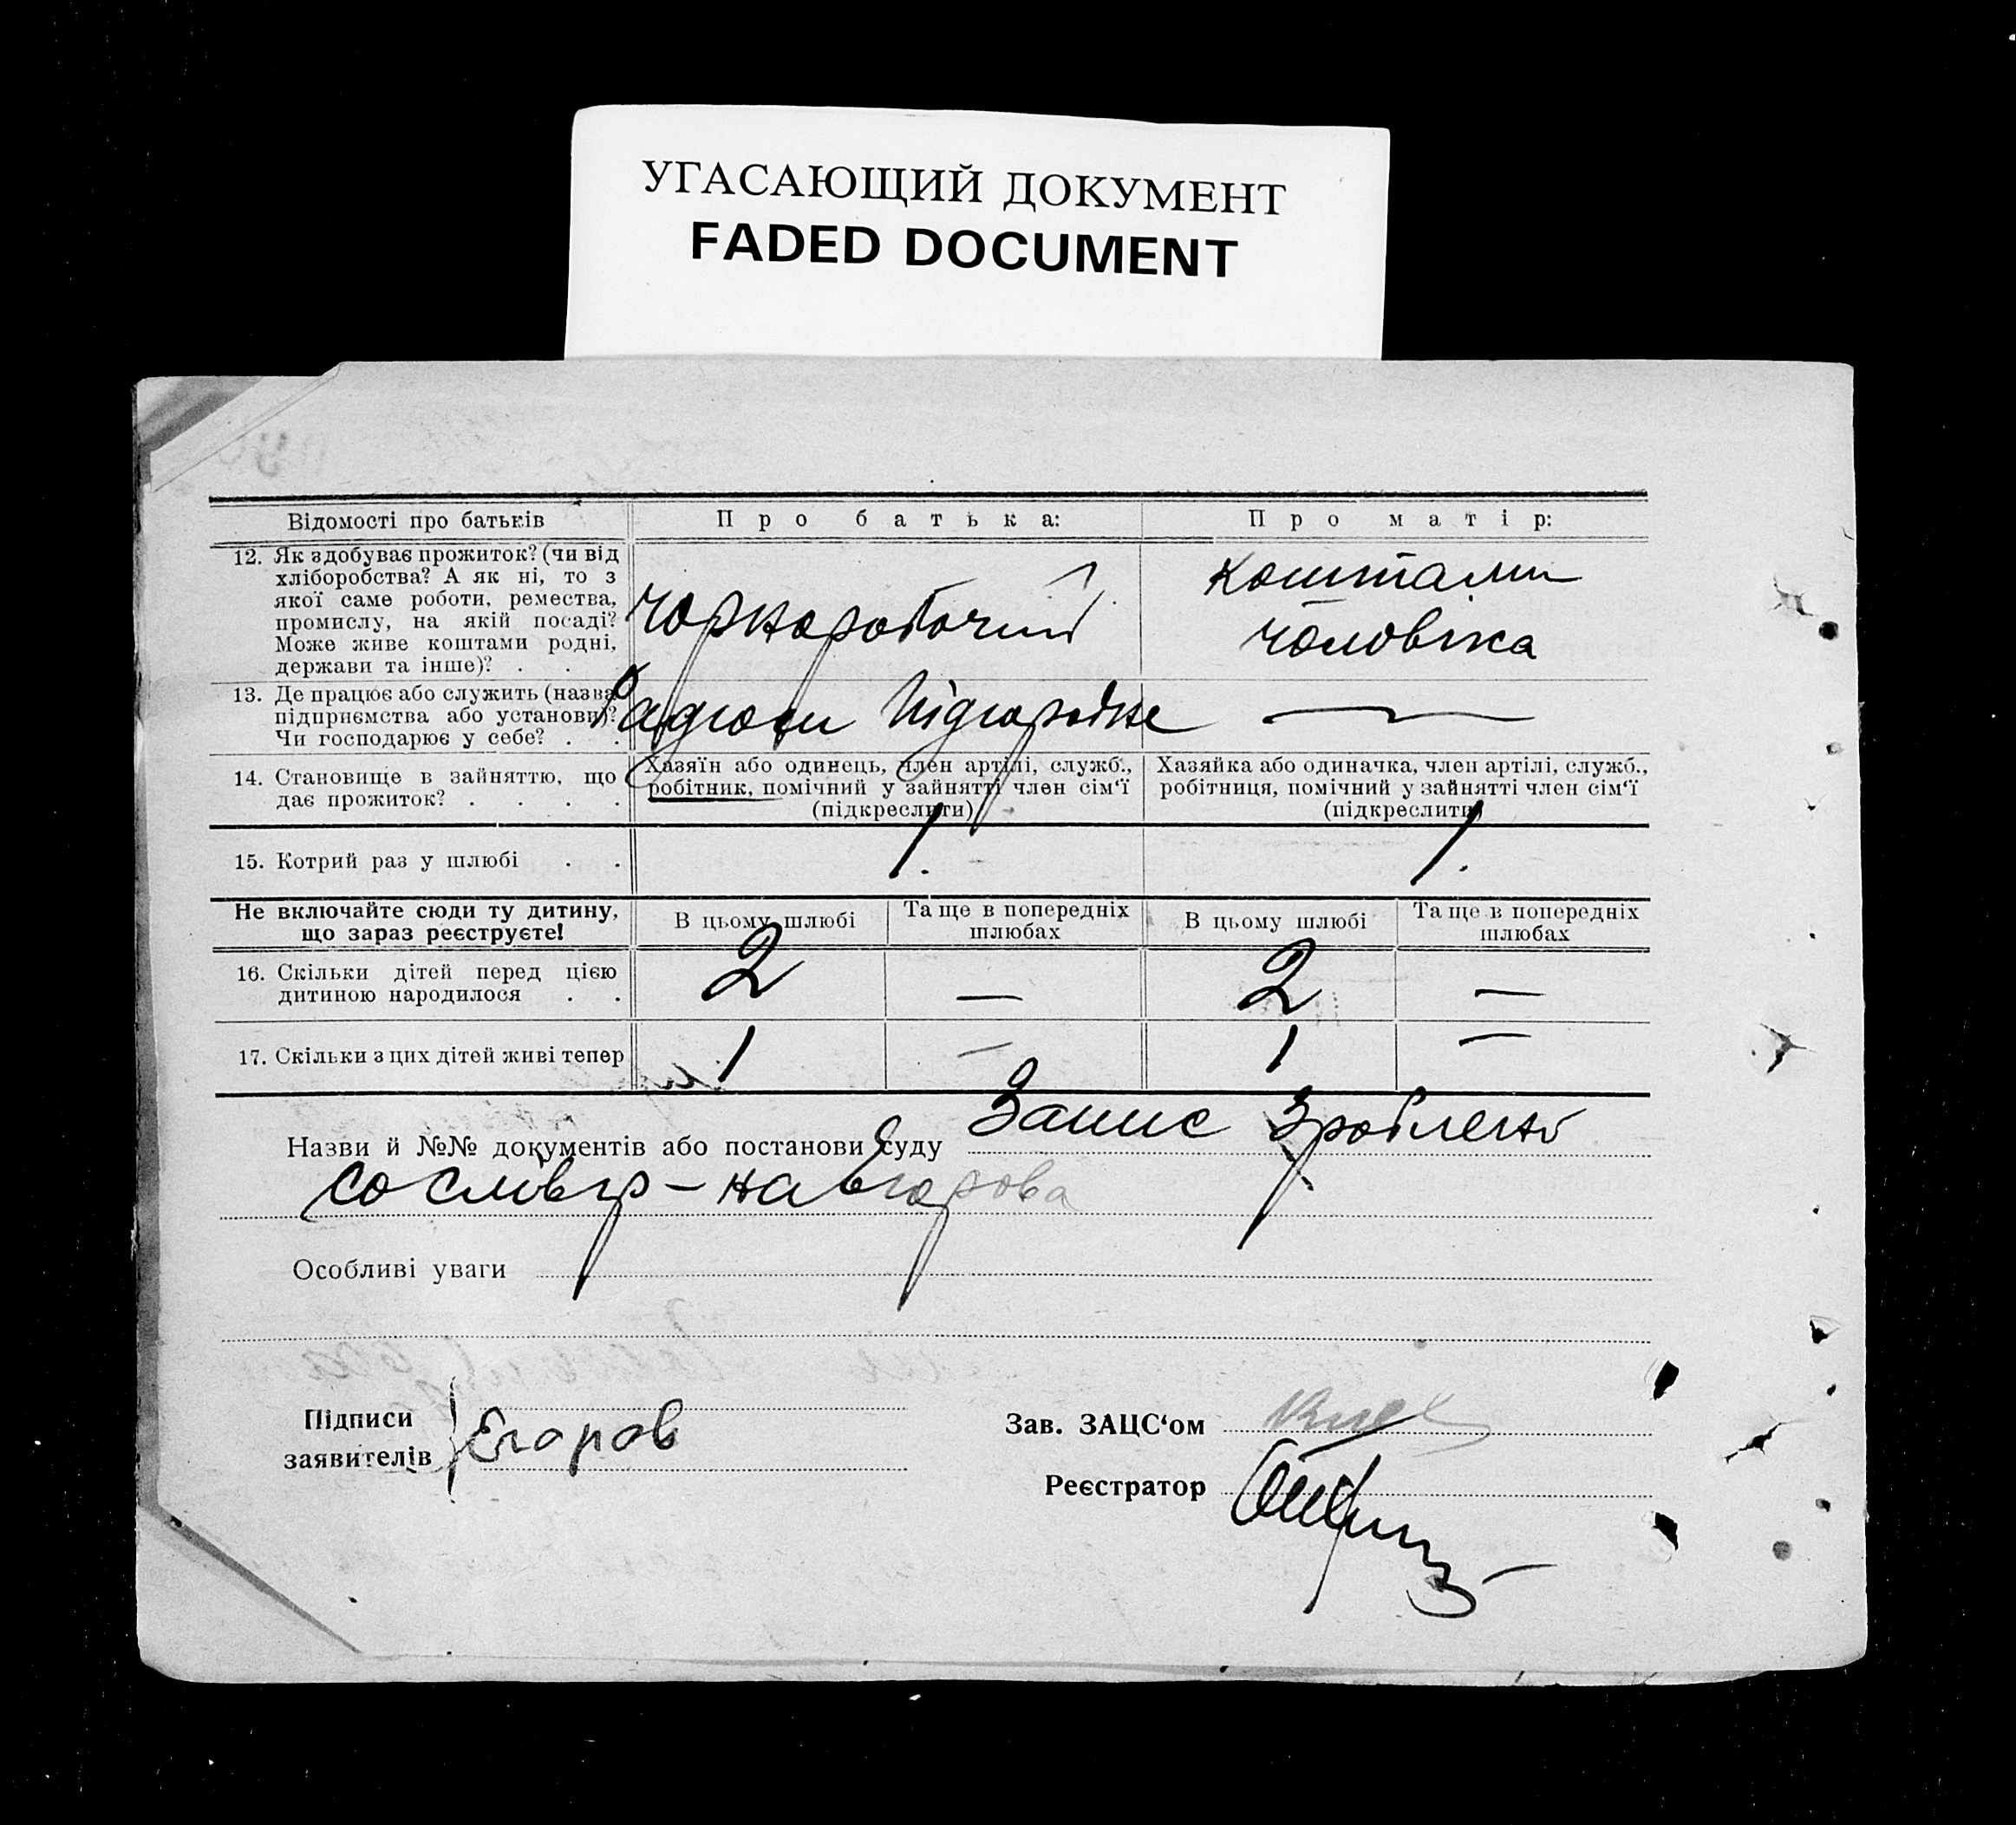 УГАСАЮЩИЙ ДОКУМЕНТ
FADED DOCUMENT
Відомості про батьків
Про батька:
Про матір:
12. Як здобуває прожиток? (чи від
хліборобства? А як ні, то з
якої саме роботи, ремества,
промислу, на якій посаді?
Може живе коштами родні,
держави та інше)? . .
чорноробочий
коштами
чоловіка
13. Де працює або служить (назва
підприємства або установи)?
Чи господарює у себе? . .
Підгородне
—
14. Становище в зайняттю, що
дає прожиток? . . . .
Хазяїн або одинець, член артілі, служб.,
робітник, помічний у зайнятті член сім'ї
(підкреслити)
Хазяйка або одиначка, член артілі, служб.,
робітниця, помічний у зайнятті член сім'ї
(підкреслити)
15. Котрий раз у шлюбі . .
1.
1.
Не включайте сюди ту дитину,
що зараз реєструєте!
В цьому шлюбі
Та ще в попередніх
шлюбах
В цьому шлюбі
Та ще в попередніх
шлюбах
16. Скільки дітей перед цією
дитиною народилося . .
2
—
2
—
17. Скільки з цих дітей живі тепер
1
—
1
—
Назви й №№ документів або постанови суду Запис зроблено
со слів гр-на Егорова
Особливі уваги
Підписи
заявителів
Егоров
Зав. ЗАЦС'ом
Реєстратор